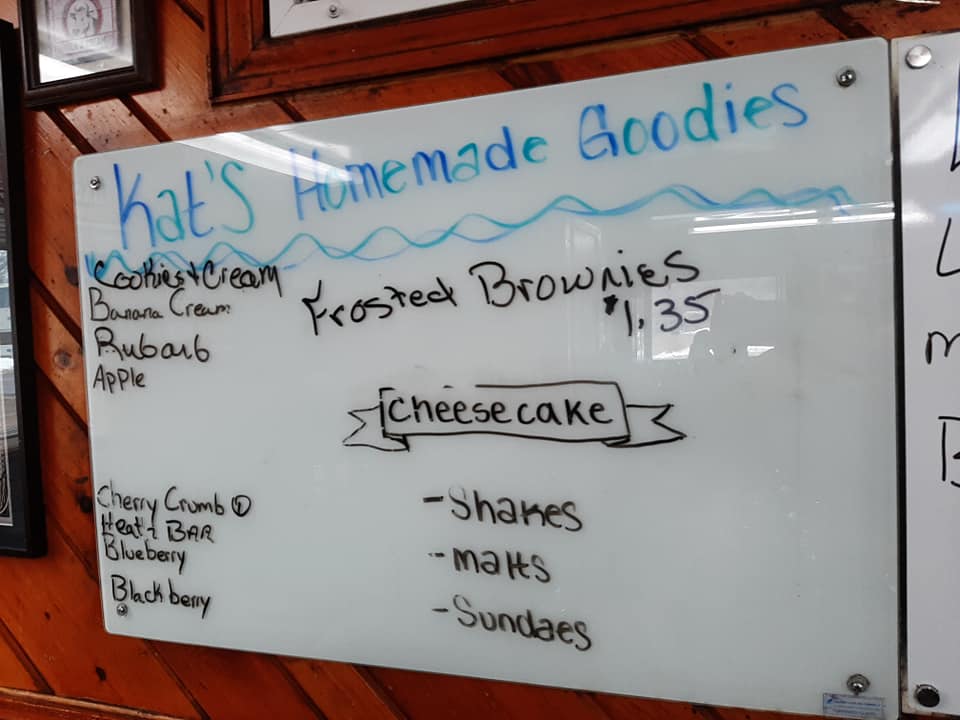 Kat's Homemade Goodies
Cookies + Cream
Banana Cream
Rubarb
Apple
Frosted Brownies
$1.35
Cheesecake
Cherry Crumb ①
Heath BAR
Blueberry
Blackberry
- Shakes
- malts
- Sundaes